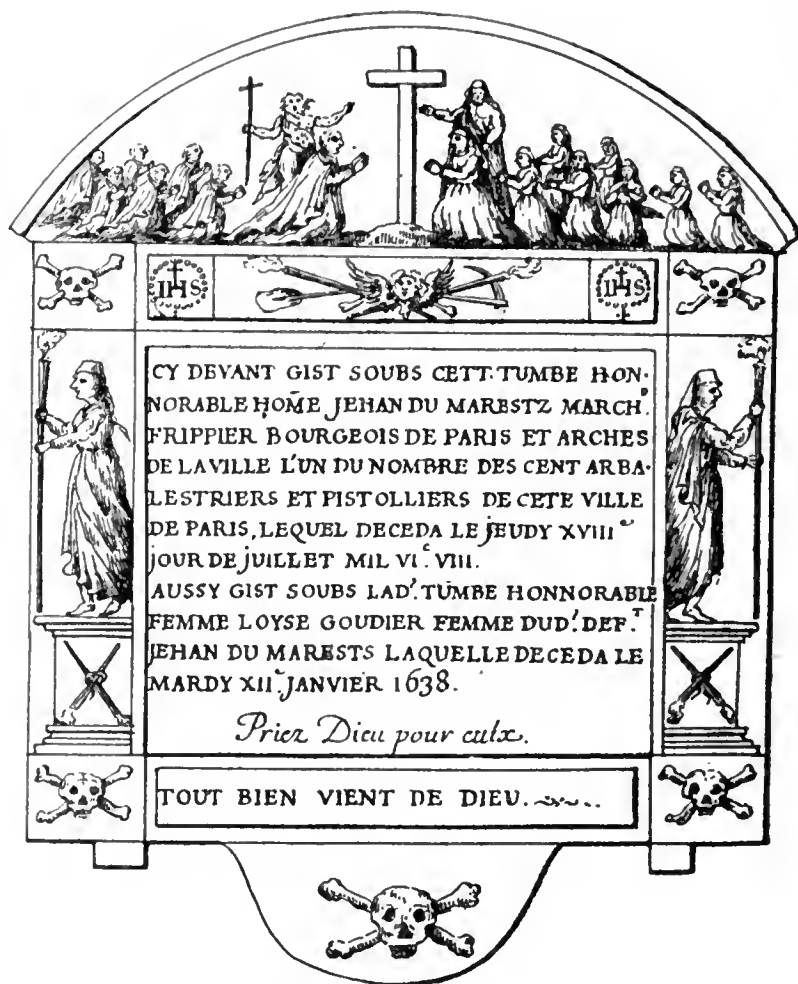 IHS IHS
CY DEVANT GIST SOUBS CETT. TUMBE HON-
NORABLE HOM̄E JEHAN DU MARESTZ MARCHᵈ.
FRIPPIER BOURGEOIS DE PARIS ET ARCHES
DE LAVILLE L'UN DU NOMBRE DES CENT ARBA-
LESTRIERS ET PISTOLLIERS DE CETE VILLE
DE PARIS, LEQUEL DECEDA LE JEUDY XVIIIᵉ
JOUR DE JUILLET MIL VIᶜ. VIII.
AUSSY GIST SOUBS LADᵗ. TUMBE HONNORABLE
FEMME LOYSE GOUDIER FEMME DUDᵗ. DEF.ᵀ
JEHAN DU MARESTS LAQUELLE DECEDA LE
MARDY XIIᵉ. JANVIER 1638.
Priez Dieu pour eulx.
TOUT BIEN VIENT DE DIEU.